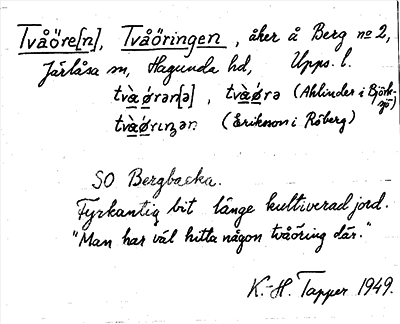 Tvåöre[n], Tvåöringen, åker å Berg nº 2,
Järlåsa sn, Hagunda hd, Upps. l.
tvàǿrən[ə], tvàǿrə (Ahlinder i Björksjö)
tvàǿrıŋən (Eriksson i Röberg)
SO Bergbacka.
Fyrkantig bit länge kultiverad jord.
"Man har väl hitta någon tvåöring där."
K.-H. Tapper 1949.